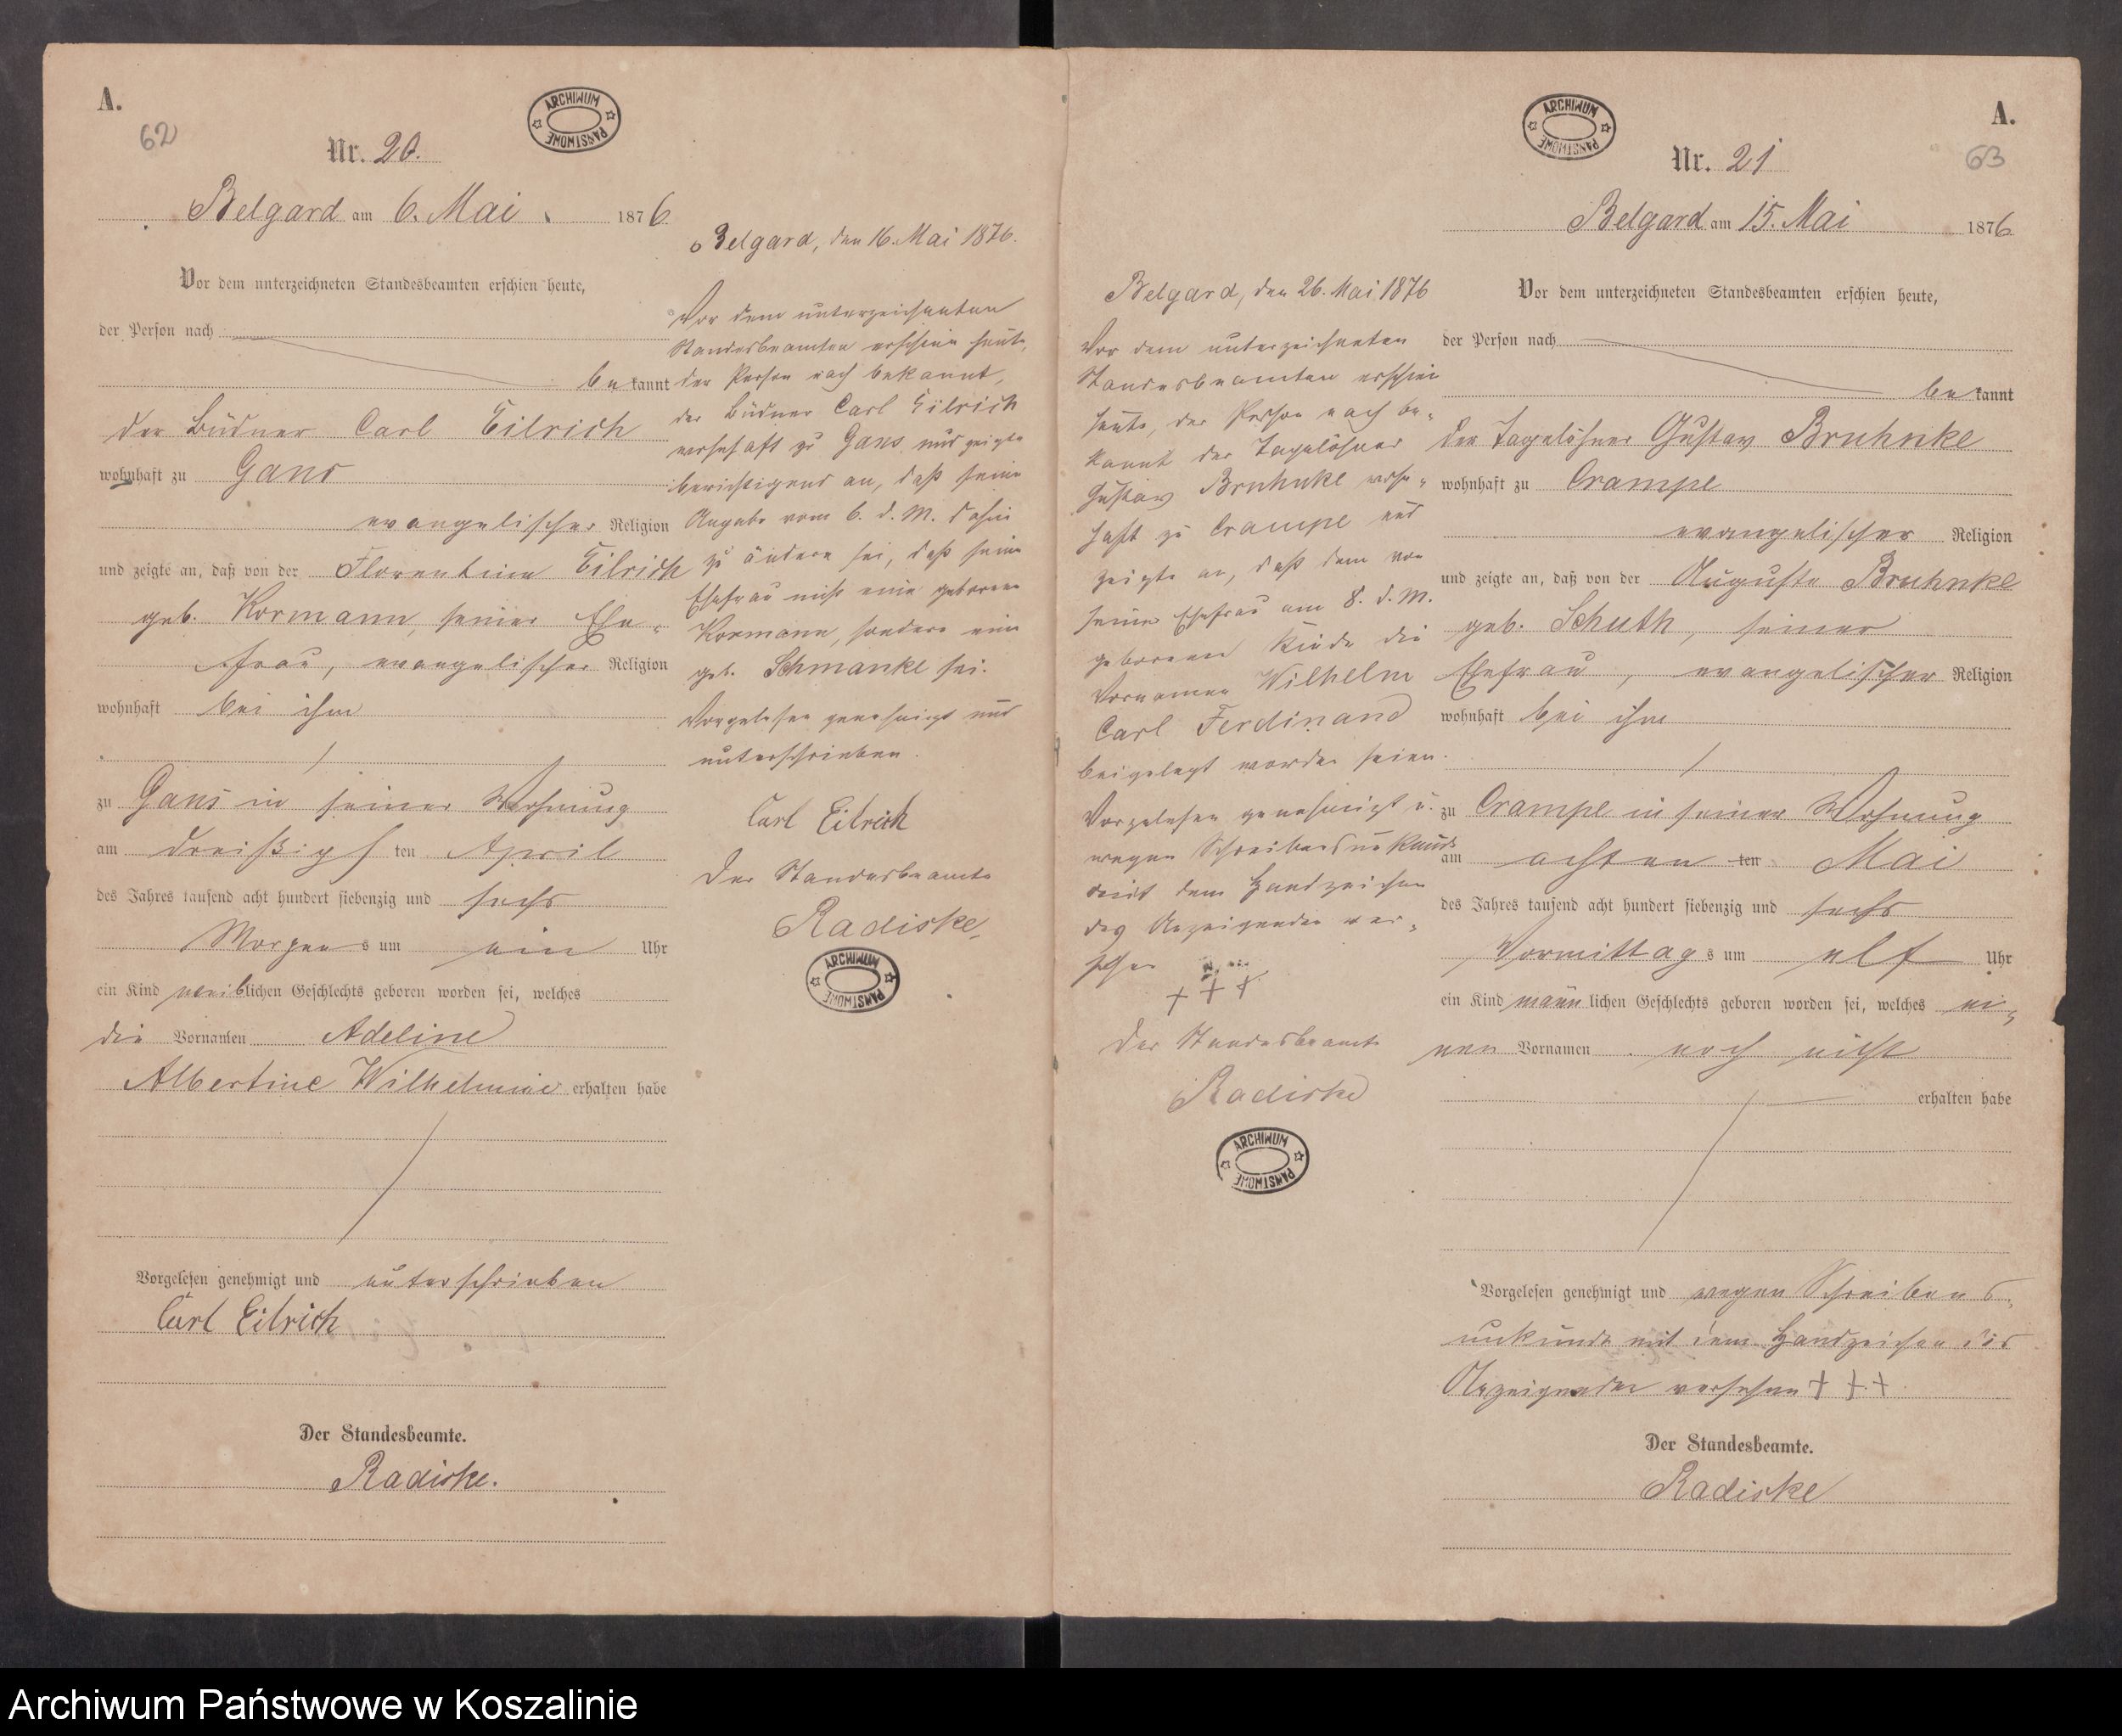 A.
62
ARCHIWUM PAŃSTWOWE
Nr. 20.
Belgard am 6. Mai 1876
Vor dem unterzeichneten Standesbeamten erschien heute,
der Person nach
bekannt
der Büdner Carl Eilrich
wohnhaft zu Gans
evangelischer Religion
und zeigte an, daß von der Florentine Eilrich
geb. Kormann, seiner Ehe-
frau, evangelischer Religion
wohnhaft bei ihm
zu Gans in seiner Wohnung
am dreißigsten April
des Jahres tausend acht hundert siebenzig und sechs
Morgens um ein Uhr
ein Kind weiblichen Geschlechts geboren worden sei, welches
die Vornamen Adeline
Albertine Wilhelmine erhalten habe
Vorgelesen genehmigt und unterschrieben
Carl Eilrich
Der Standesbeamte.
Radiske.
Belgard, den 16. Mai 1876.
Vor dem unterzeichneten
Standesbeamten erschien heute,
der Person nach bekannt,
der Büdner Carl Eilrich
wohnhaft zu Gans und zeigte
berichtigend an, daß seine
Angabe vom 6. d. M. dahin
zu ändern sei, daß seine
Ehefrau nicht eine geborene
Kormann, sondern eine
geb. Schmanke sei.
Vorgelesen genehmigt und
unterschrieben.
Carl Eilrich
Der Standesbeamte
Radiske.
ARCHIWUM PAŃSTWOWE
Belgard, den 26. Mai 1876
Vor dem unterzeichneten
Standesbeamten erschien
heute, der Person nach be-
kannt der Tagelöhner
Gustav Bruhnke wohn-
haft zu Crampe und
zeigte an, daß dem von
seiner Ehefrau am 8. d. M.
geborenen Kinde die
Vornamen Wilhelm
Carl Ferdinand
beigelegt worden seien.
Vorgelesen genehmigt u.
wegen Schreibensunkunde
mit dem Handzeichen
des Anzeigenden ver-
sehen
+ + +
Der Standesbeamte
Radiske
ARCHIWUM PAŃSTWOWE
ARCHIWUM PAŃSTWOWE
A.
63
Nr. 21
Belgard am 15. Mai 1876
Vor dem unterzeichneten Standesbeamten erschien heute,
der Person nach
bekannt
der Tagelöhner Gustav Bruhnke
wohnhaft zu Crampe
evangelischer Religion
und zeigte an, daß von der Auguste Bruhnke
geb. Schuth, seiner
Ehefrau, evangelischer Religion
wohnhaft bei ihm
zu Crampe in seiner Wohnung
am achten ten Mai
des Jahres tausend acht hundert siebenzig und sechs
Vormittags um elf Uhr
ein Kind männlichen Geschlechts geboren worden sei, welches ei-
nen Vornamen noch nicht
erhalten habe
Vorgelesen genehmigt und wegen Schreibens-
unkunde mit dem Handzeichen des
Anzeigenden versehen + + +
Der Standesbeamte.
Radiske
Archiwum Państwowe w Koszalinie